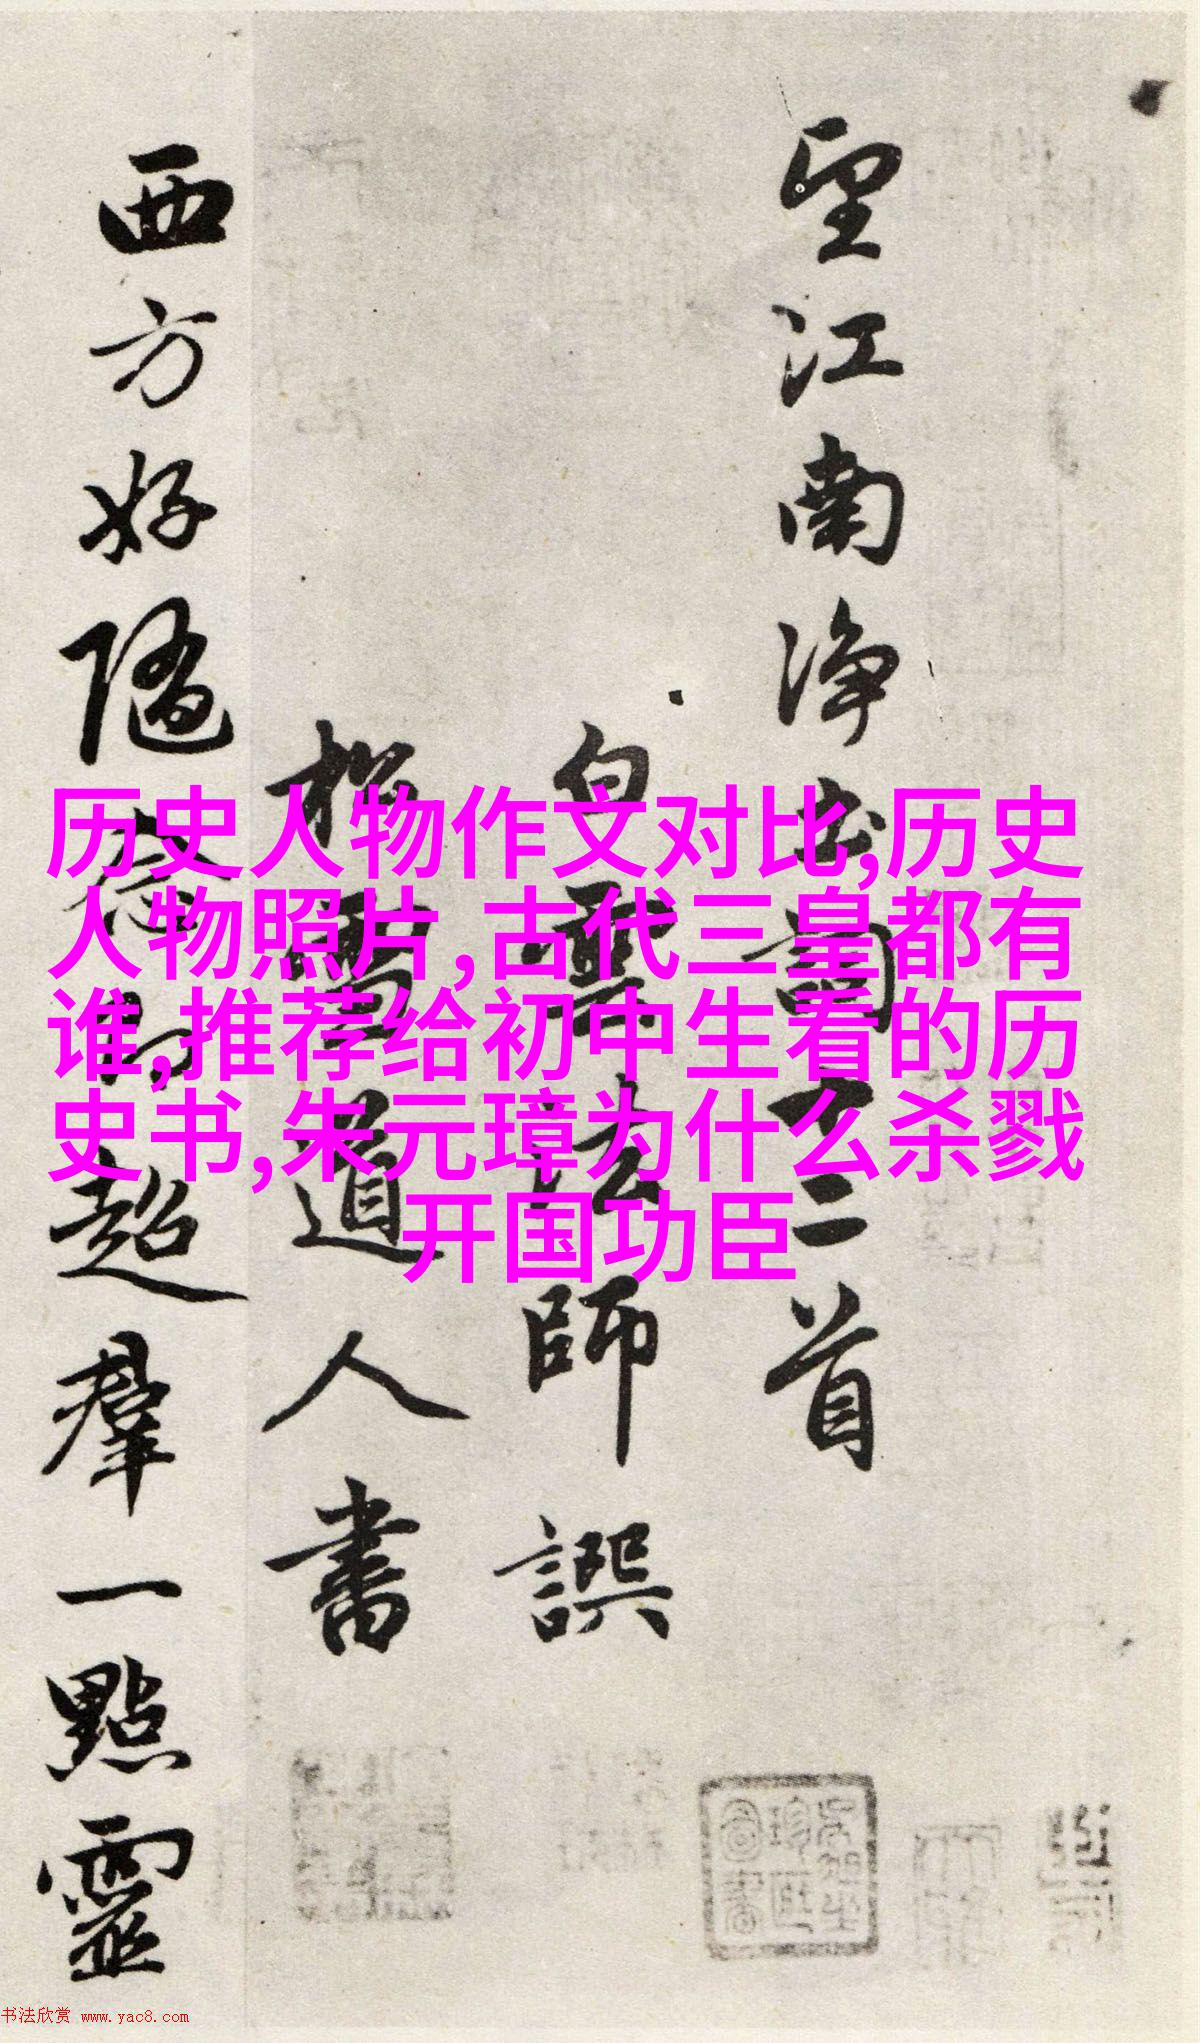 望江南净土词十二首
白云法师譔
松雪道人书
西方好随念即超羣一點靈
历史人物作文对比,历史
人物照片,古代三皇都有
谁,推荐给初中生看的历
史书,朱元璋为什么杀戮
开国功臣
书法欣赏 www.yac8.com